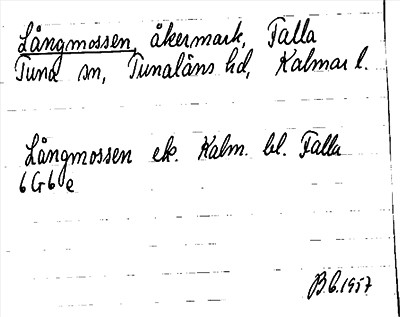 Långmossen, åkermark, Falla
Tuna sn, Tunaläns hd, Kalmar l.
Långmossen ek. Kalm. bl. Falla
6G6e
B.C.1957